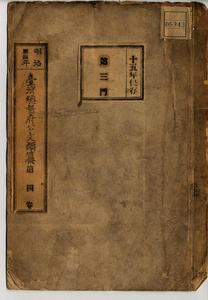 十五年保存
第三門
明治
臺灣總督府公文類纂 第四卷